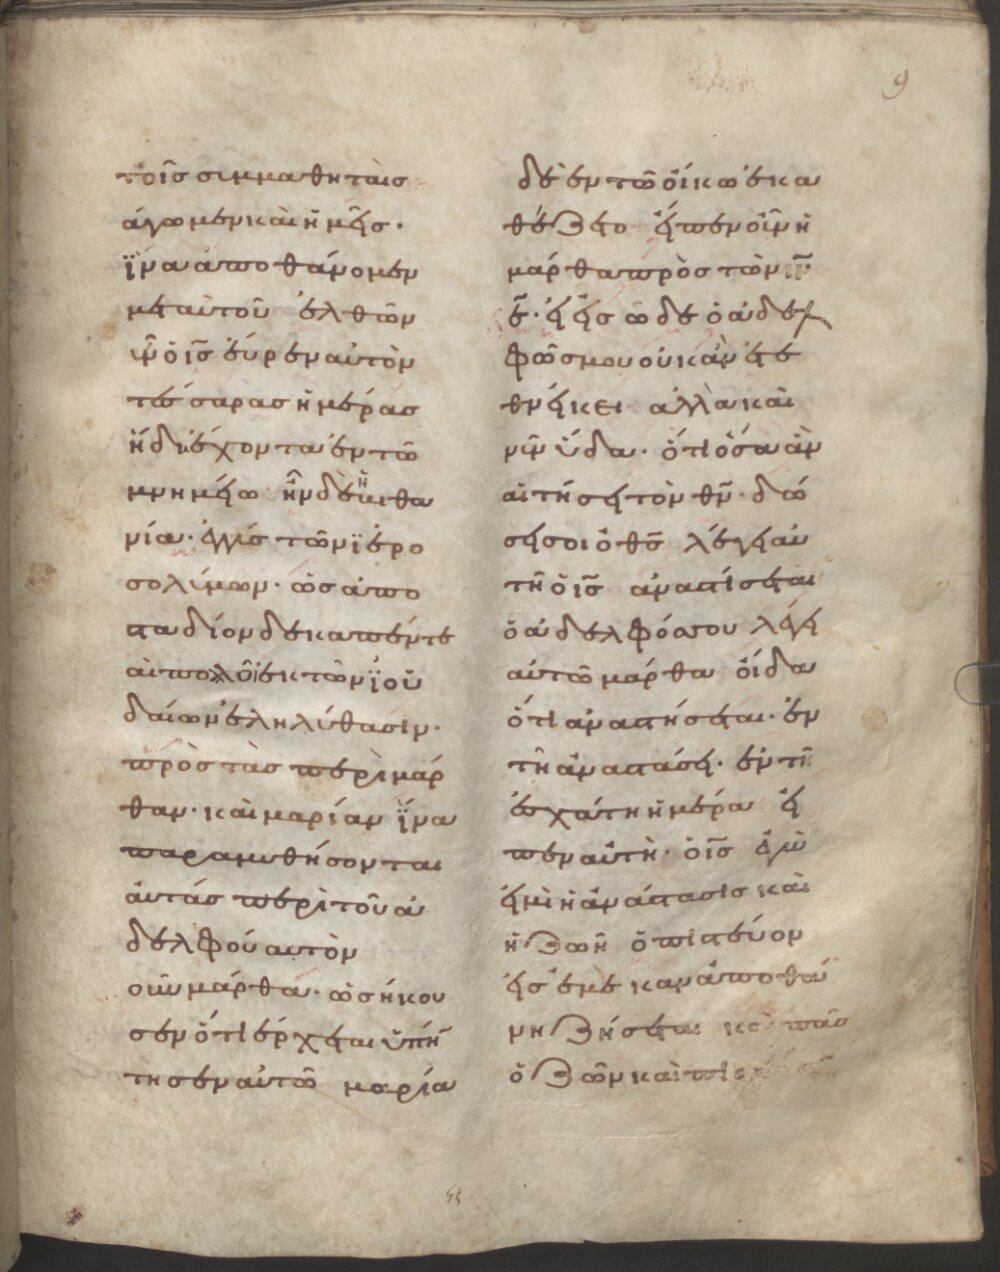 9
τοῖς συμμαθηταὶσ
ἀγωμεν καὶ ἡμεῖσ·
ἵνα ἀποθάνομεν
μετ αὐτοῦ ἐλθὼν
οὖν ὁ ις̅ εὗρεν αὐτὸν
τέσσαρασ ἡμέρασ
ἤδη ἔχοντα ἐν τῶ
μνημείω ἦν δὲ ἡ βιθα
νία· ἐγγὺσ τῶν ἱερο
σολύμων· ὡσ ἀπο
σταδίον δεκαπέντε
καὶ πολλοὶ ἐκ τῶν ἰου
δαίων ἐληλύθασιν·
πρὸσ τὰσ περὶ μάρ
θαν· καὶ μαρίαν ἵνα
παραμυθήσονται
ἀυτάσ περὶ τοῦ ἀ
δελφού αυτὸν
οὖν μάρθα· ὡσ ήκου
σεν ὅτι έρχεται ὑπήν
τησεν αὐτῶ μαρία
δὲ ἐν τῶ οἴκω ἐκα
θέζετο εἶπεν οὖν ἡ
μάρθα πρὸσ τὸν ιν̅
κ̅ε̅· εἰ εἶσ ὧδε ὁ ἀδελ
φῶσ μου οὐκ ἀν ἐτέ
θνήκει αλλὰ και
νῦν οἶδα· ὅτι ὅσα ἀν
αἰτήση τὸν θν̅· δώ
σει σοι ὁ θς̅ λέγει αυ
τῆ ὁ ις̅ αναστίσεται
ὁ ἀδελφόσ σου λέγει
αὐτῶ μάρθα οἶδα
ὅτι αναστήσεται· ἐν
τῆ ἀναστάσει· ἐν τῆ
ἐσχάτη ἡμέρα εἶ
πεν αὐτὴ· ὁ ις̅ ἐγὼ
εἰμὶ ἡ ἀνάστασισ καὶ
ἡ ζωὴ ὁ πιστεύον
εἰσ ἐμὲ καν ἀποθά
νη ζήσεται και πᾶσ
ὁ ζῶν και πισ